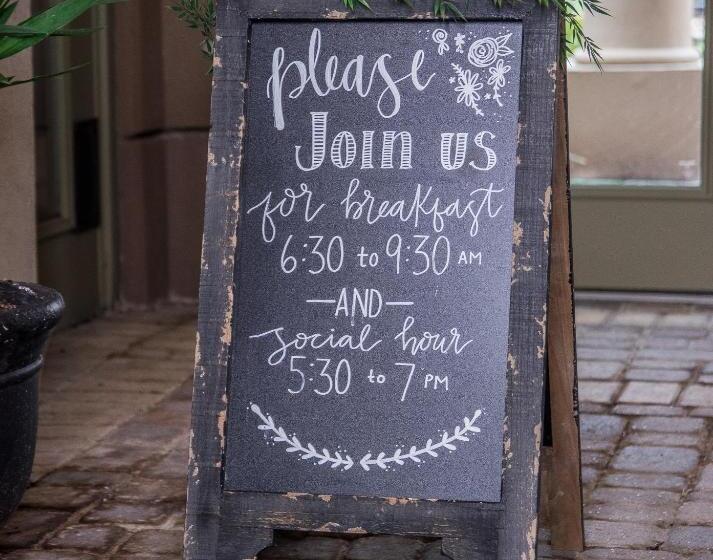 please
Join us
for breakfast
6:30 to 9:30 AM
—AND—
social hour
5:30 to 7 PM